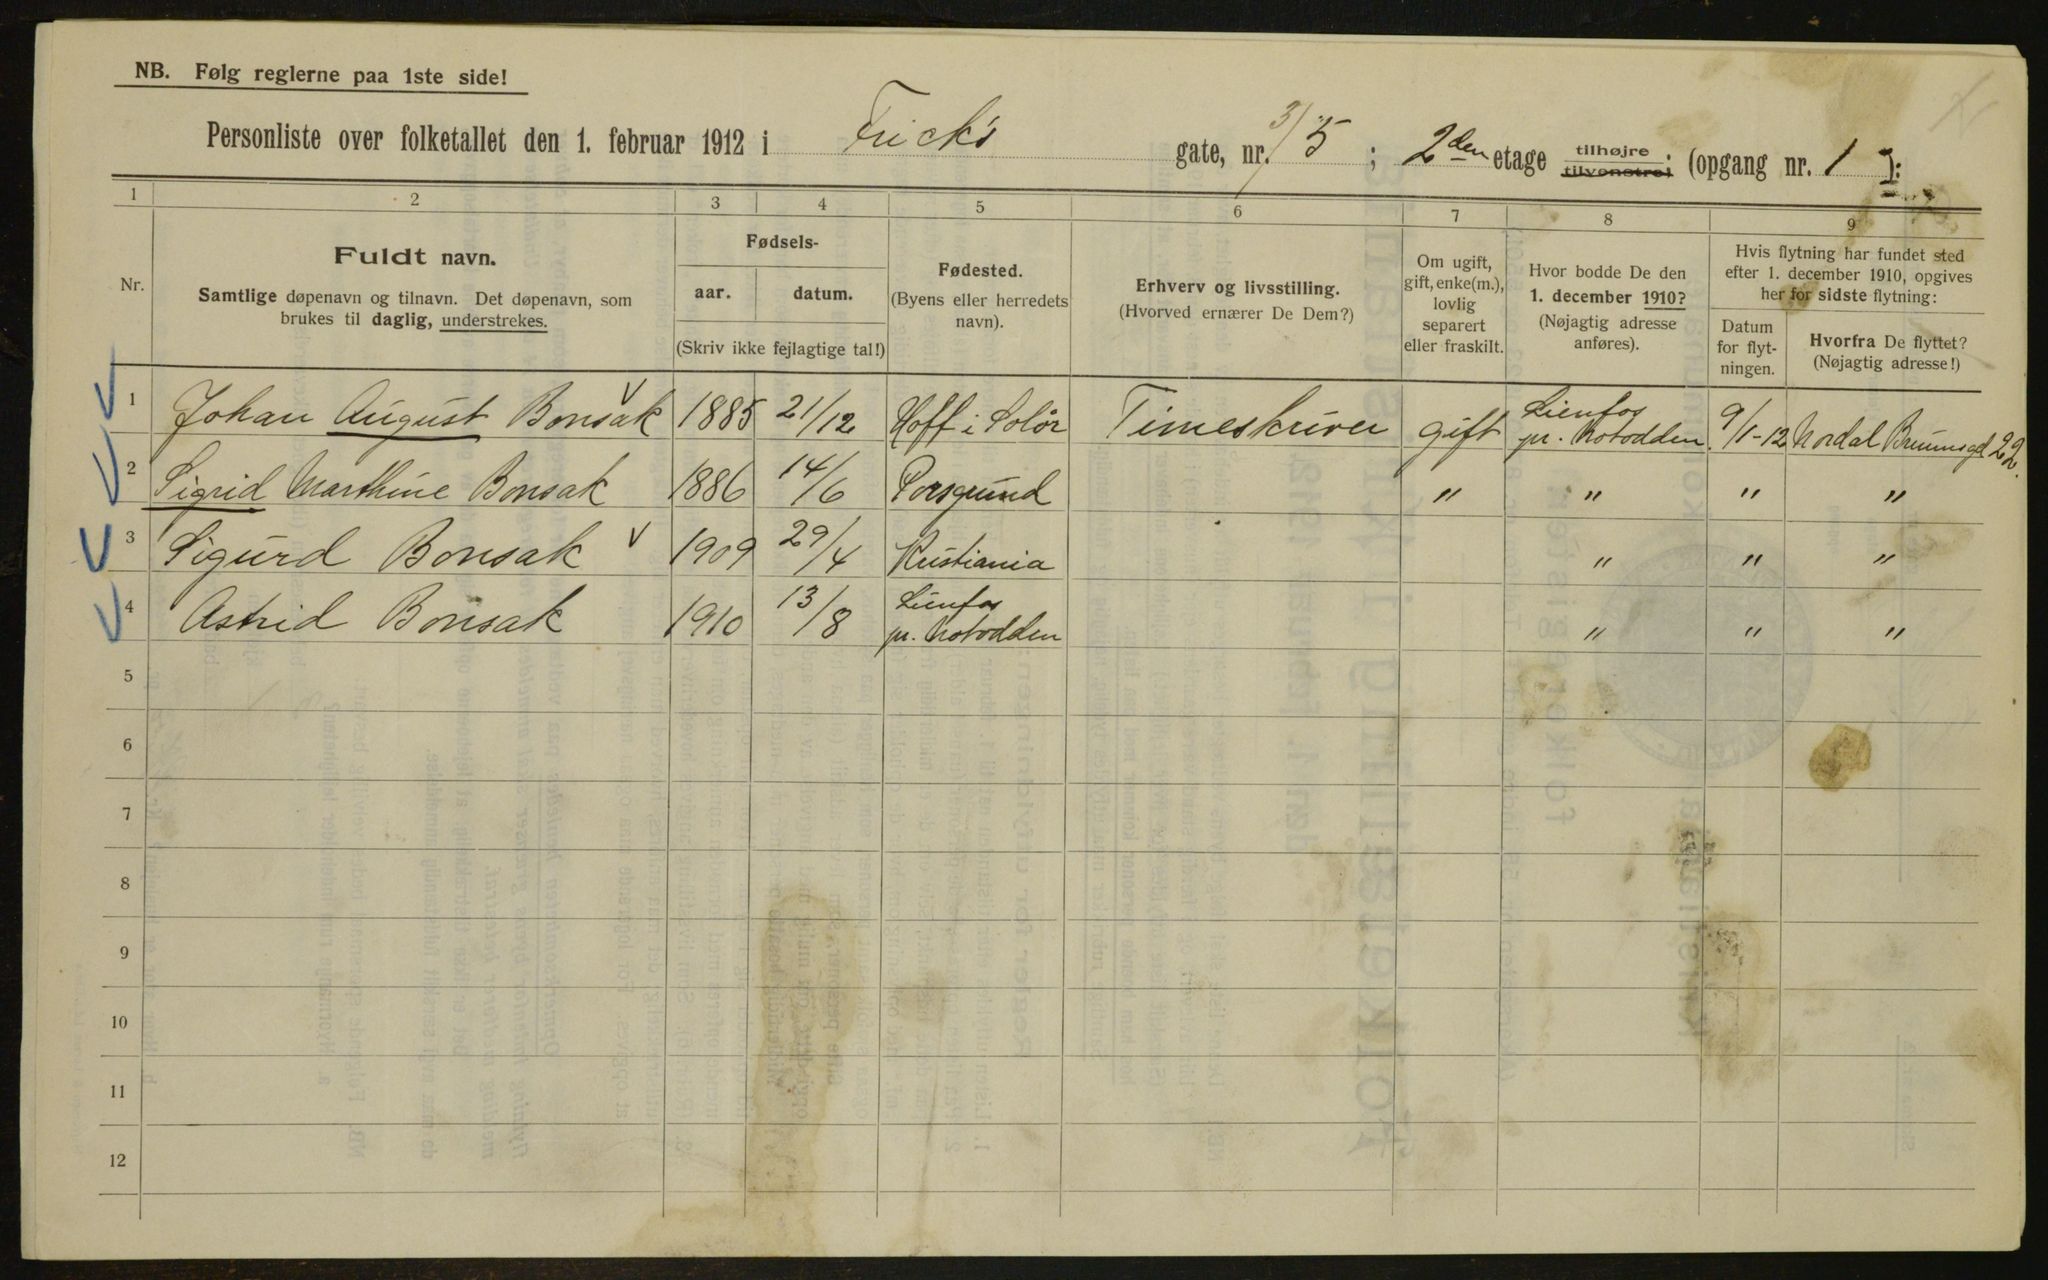 NB. Følg reglerne paa 1ste side!
Personliste over folketallet den 1. februar 1912 i Frick's gate, nr. 3/5 ; 2den etage tilhøjre tilvenstre; (opgang nr. 1 ):
1 2 3 4 5 6 7 8 9
Nr.
Fuldt navn.
Samtlige døpenavn og tilnavn. Det døpenavn, som
brukes til daglig, understrekes.
Fødsels-
aar. datum.
(Skriv ikke fejlagtige tal!)
Fødested.
(Byens eller herredets
navn).
Erhverv og livsstilling.
(Hvorved ernærer De Dem?)
Om ugift,
gift, enke(m.),
lovlig
separert
eller fraskilt.
Hvor bodde De den
1. december 1910?
(Nøjagtig adresse
anføres).
Hvis flytning har fundet sted
efter 1. december 1910, opgives
her for sidste flytning:
Datum
for flyt-
ningen.
Hvorfra De flyttet?
(Nøjagtig adresse!)
1 Johan August Bonsak 1885 21/12 Hoff i Solør Timeskriver gift Lienfos pr. Notodden 9/1-12 Nordal Bruunsgd 22.
2 Sigrid Marthine Bonsak 1886 14/6 Porsgrund " " " "
3 Sigurd Bonsak 1909 29/4 Kristiania " " "
4 Astrid Bonsak 1910 13/8 Lienfos pr. Notodden " " "
5
6
7
8
9
10
11
12